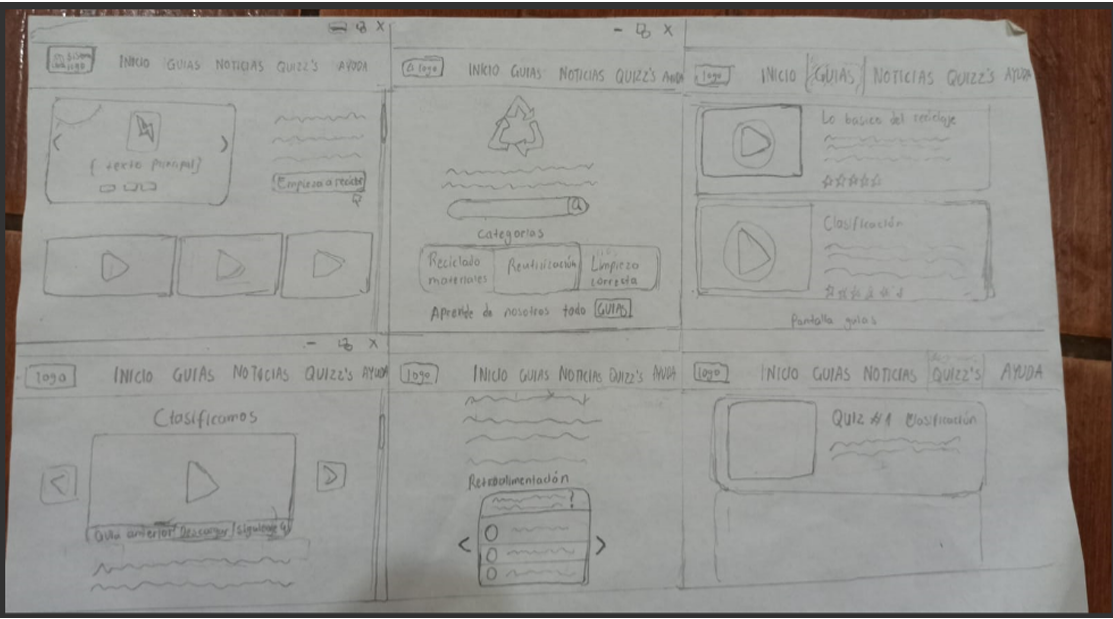 INICIO GUIAS NOTICIAS QUIZZ'S AYUDA
{ texto principal }
Empieza a reciclar
logo
INICIO GUIAS NOTICIAS QUIZZ'S AYUDA
Categorias
Reciclado materiales
Reutilización
Limpieza correcta
Aprende de nosotros todo GUIAS
logo
INICIO GUIAS NOTICIAS QUIZZ'S AYUDA
Lo basico del reciclaje
Clasificación
Pantalla guias
logo
INICIO GUIAS NOTICIAS QUIZZ'S AYUDA
Clasificamos
Guia anterior Descargar Siguiente
logo
INICIO GUIAS NOTICIAS QUIZZ'S AYUDA
Retroalimentación
?
logo
INICIO GUIAS NOTICIAS QUIZZ'S AYUDA
QUIZ #1 Clasificación